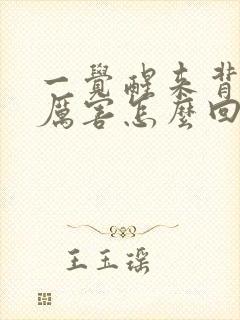 一覺醒來背
厲害怎麼回
王玉瑶